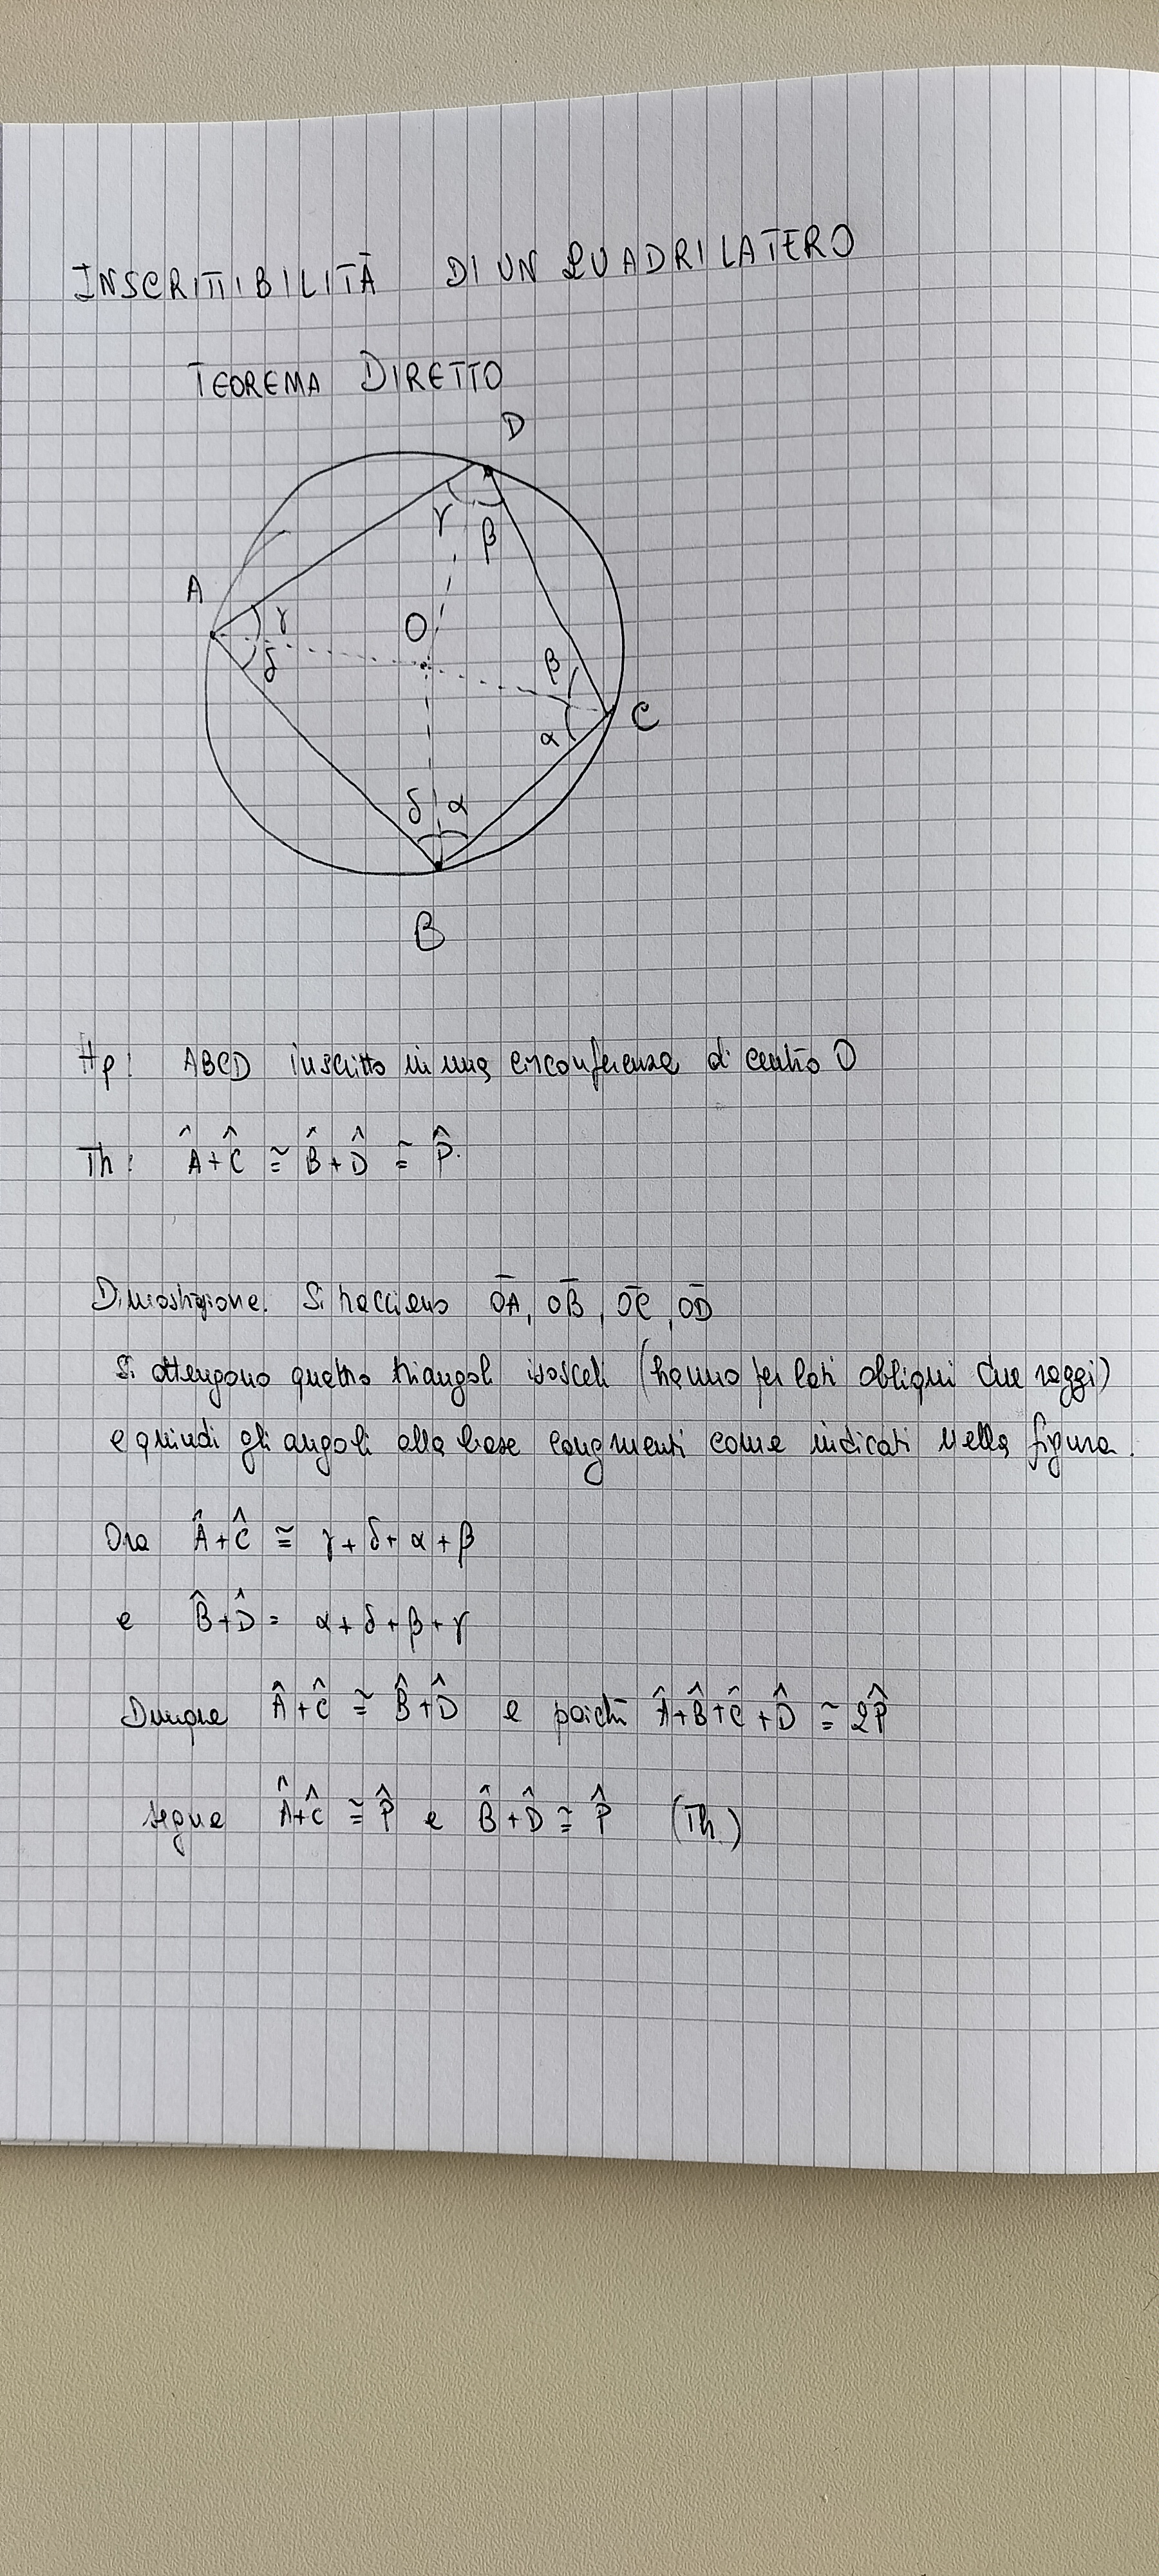 INSCRITTIBILITÀ DI UN QUADRILATERO
TEOREMA DIRETTO
D
γ β
A
γ
O
δ
β
C
α
δ α
B
Hp: ABCD inscritto in una circonferenza di centro O
Th: Â+Ĉ ≅ B̂+D̂ ≅ P̂.
Dimostrazione. Si tracciano O̅A̅, O̅B̅, O̅C̅, O̅D̅
Si ottengono quattro triangoli isosceli (hanno per lati obliqui due raggi)
e quindi gli angoli alla base congruenti come indicati nella figura.
Ora Â+Ĉ ≅ γ+δ+α+β
e B̂+D̂ = α+δ+β+γ
Dunque Â+Ĉ ≅ B̂+D̂ e poiché Â+B̂+Ĉ+D̂ ≅ 2P̂
segue Â+Ĉ ≅ P̂ e B̂+D̂ ≅ P̂ (Th.)